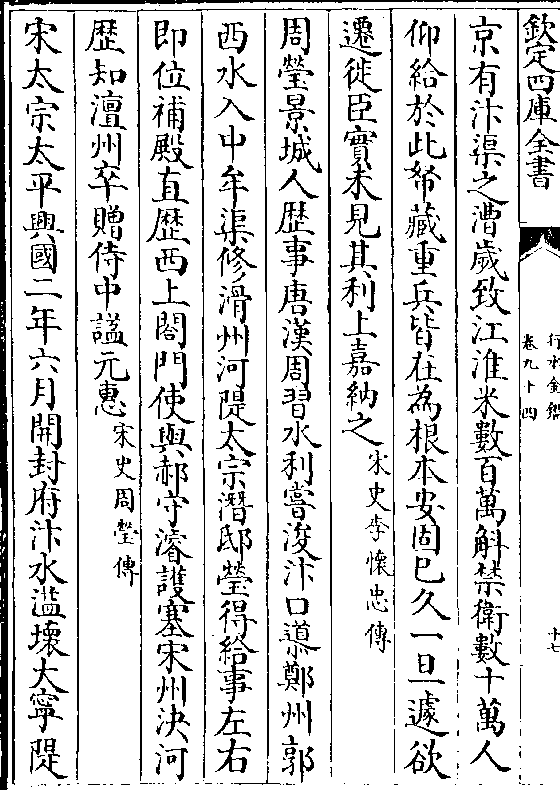 欽定四庫全書
行水金鑑
卷九十四
十七
京有汴渠之漕歲致江淮米數百萬斛禁衛數十萬人
仰給於此帑藏重兵皆在為根本安固已久一旦遽欲
遷徙臣實未見其利上嘉納之宋史李懷忠傳
周瑩景城人歷事唐漢周習水利嘗浚汴口導鄭州郭
西水入中牟渠修滑州河隄太宗潛邸瑩得給事左右
即位補殿直歷西上閤門使與郝守濬護塞宋州決河
歷知澶州卒贈侍中諡元惠宋史周瑩傳
宋太宗太平興國二年六月開封府汴水溢壞大寧隄